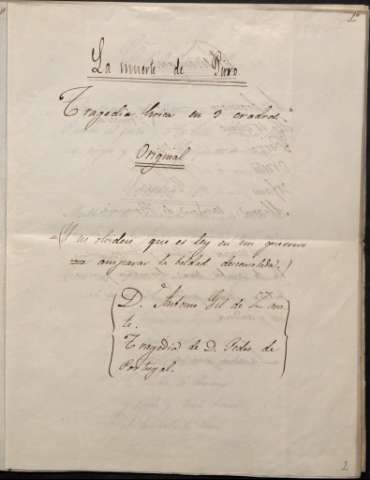 1º
La muerte de Pirro
Tragedia lírica en 3 cuadros.
Original
(Y no olvideis que es ley en un guerrero
amparar la beldad desconsolada.)
D. Antonio Gil de Zarate
te.
Tragedia de D. Pedro de
Portugal.
2